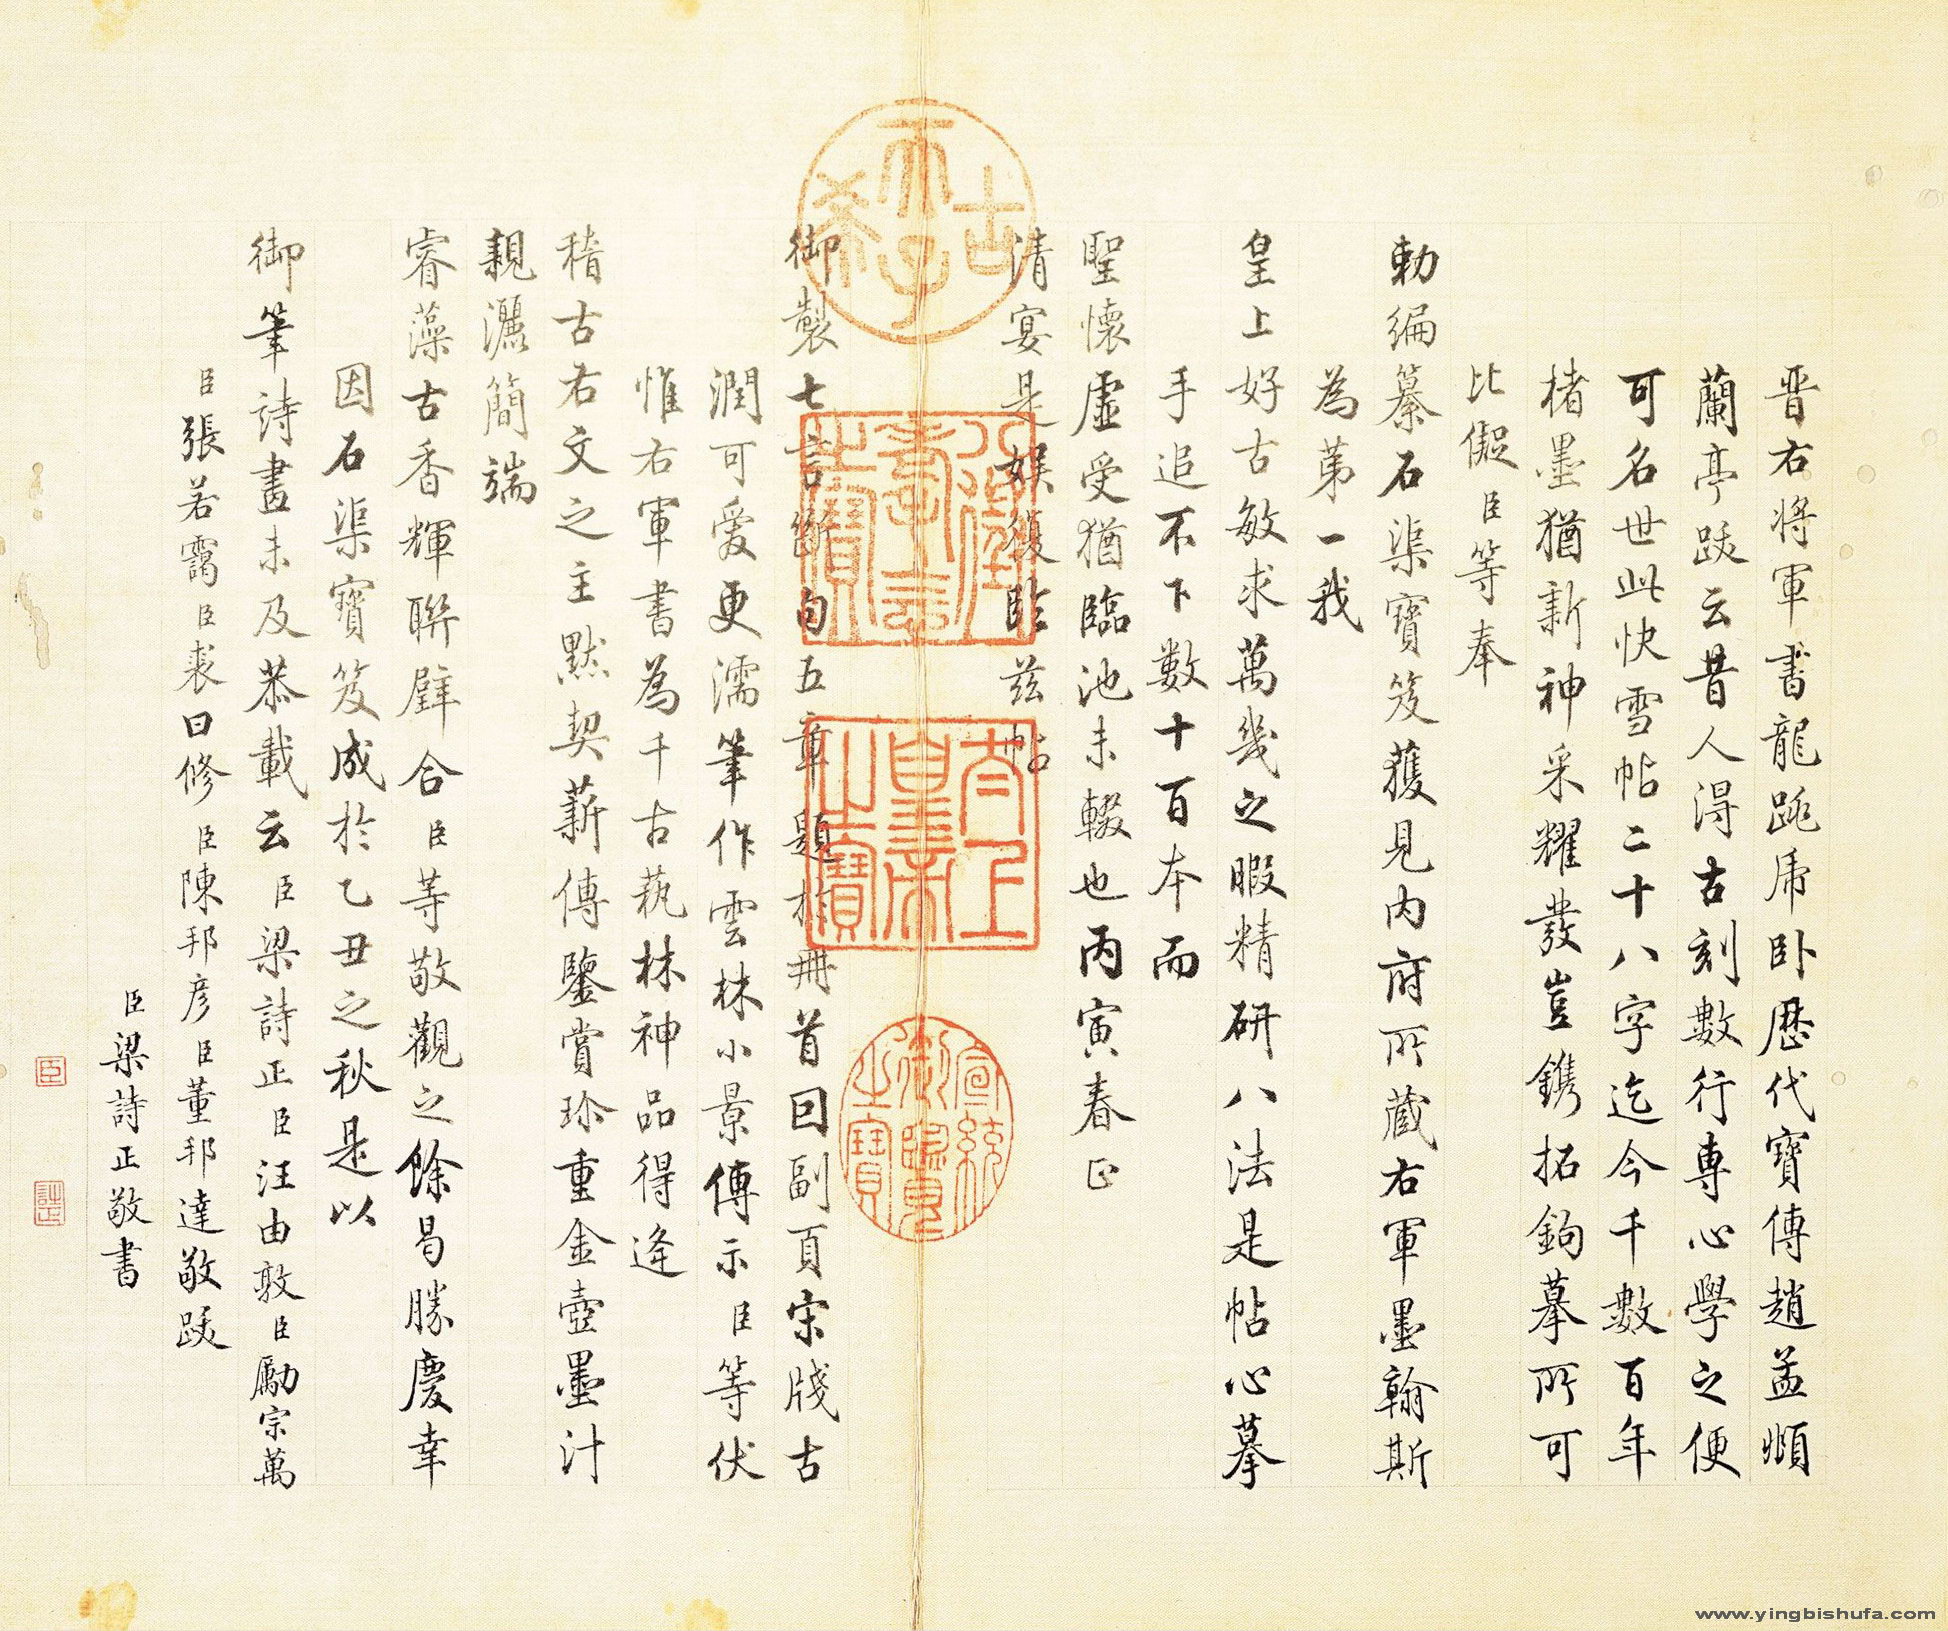 晋右将軍書龍跳乕卧歷代寶傳趙孟頫
蘭亭跋云昔人得古刻數行專心學之便
可名世此快雪帖二十八字迄今千數百年
楮墨猶新神采耀發豈鐫拓鉤摹所可
比儗臣等奉
勅編纂石渠寶笈獲見内府所蔵右軍墨翰斯
為苐一我
皇上好古敏求萬幾之暇精研八法是帖心摹
手追不下數十百本而
聖懷虚受猶臨池未輟也丙寅春正
清宴是娱復臨兹帖
御製七言斷句五章題於冊首曰副頁宋牋古
潤可愛更濡筆作雲林小景傳示臣等伏
惟右軍書為千古蓺林神品得逄
稽古右文之主默契薪傳鑒賞珎重金壺墨汁
親灑簡端
睿藻古香輝聯璧合臣等敬觀之餘曷勝慶幸
因石渠寳笈成於乙丑之秋是以
御筆詩畫未及恭載云臣梁詩正臣汪由敦臣勵宗萬
臣張若靄臣裘曰修臣陳邦彦臣董邦達敬跋
臣梁詩正敬書
古希天子
八徵耄念之寶
太上皇帝之寶
宣統御覽之寶
臣
詩正
www.yingbishufa.com